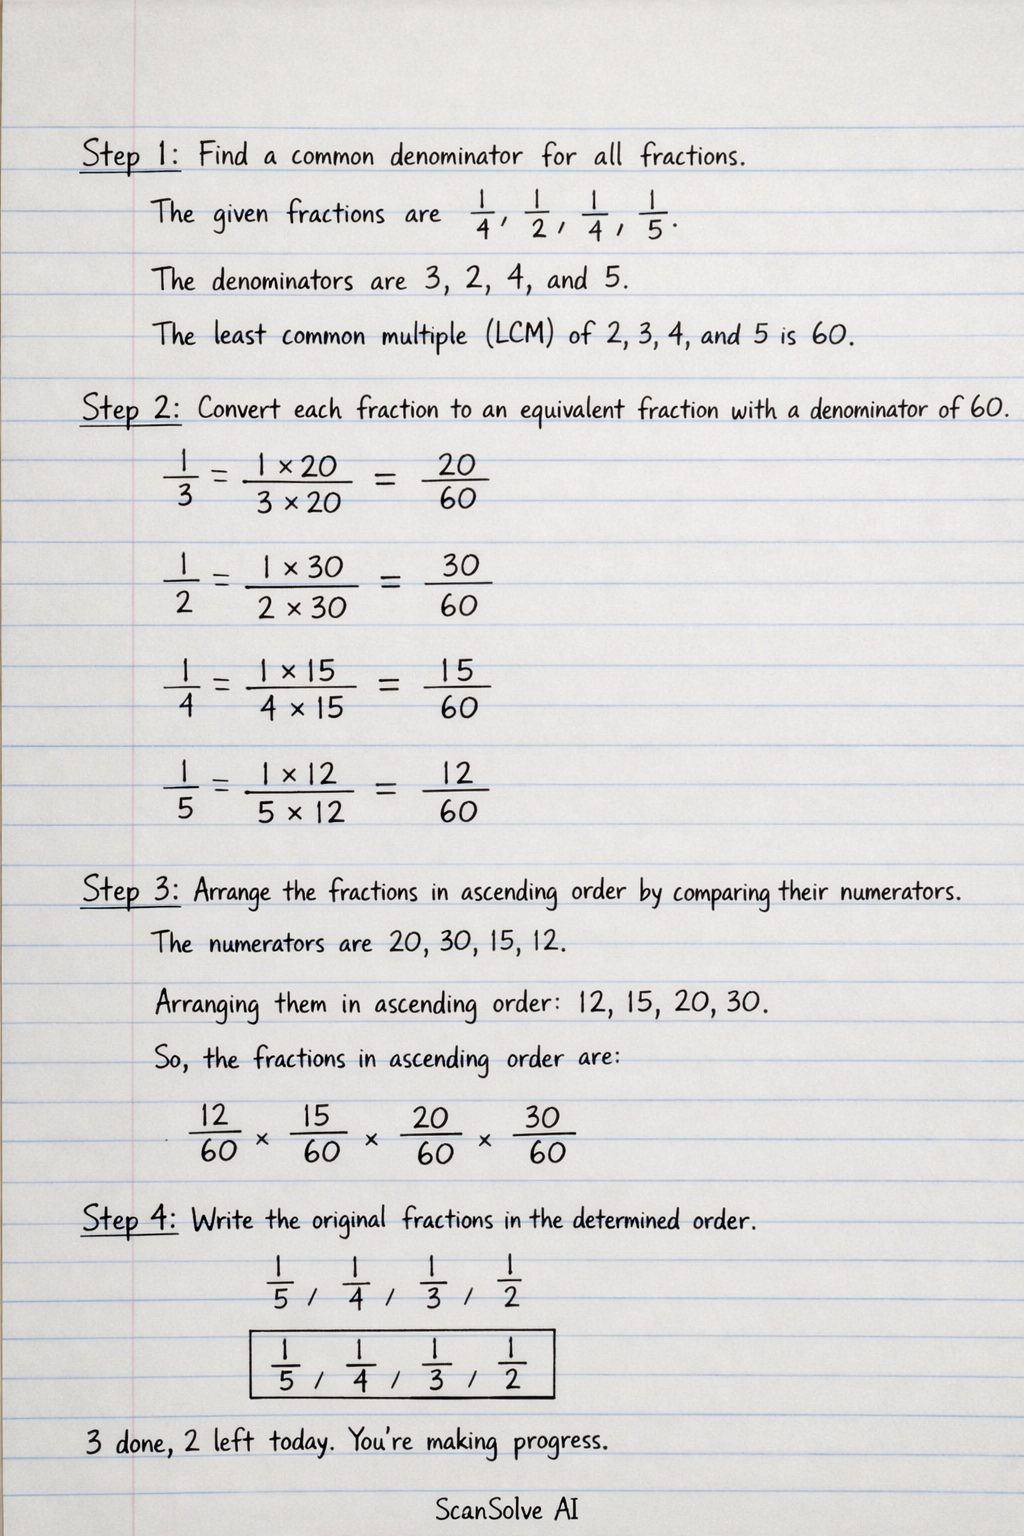 Step 1: Find a common denominator for all fractions.
The given fractions are 1/4, 1/2, 1/4, 1/5.
The denominators are 3, 2, 4, and 5.
The least common multiple (LCM) of 2, 3, 4, and 5 is 60.
Step 2: Convert each fraction to an equivalent fraction with a denominator of 60.
1/3 = (1 × 20)/(3 × 20) = 20/60
1/2 = (1 × 30)/(2 × 30) = 30/60
1/4 = (1 × 15)/(4 × 15) = 15/60
1/5 = (1 × 12)/(5 × 12) = 12/60
Step 3: Arrange the fractions in ascending order by comparing their numerators.
The numerators are 20, 30, 15, 12.
Arranging them in ascending order: 12, 15, 20, 30.
So, the fractions in ascending order are:
12/60 × 15/60 × 20/60 × 30/60
Step 4: Write the original fractions in the determined order.
1/5 , 1/4 , 1/3 , 1/2
1/5 , 1/4 , 1/3 , 1/2
3 done, 2 left today. You're making progress.
ScanSolve AI